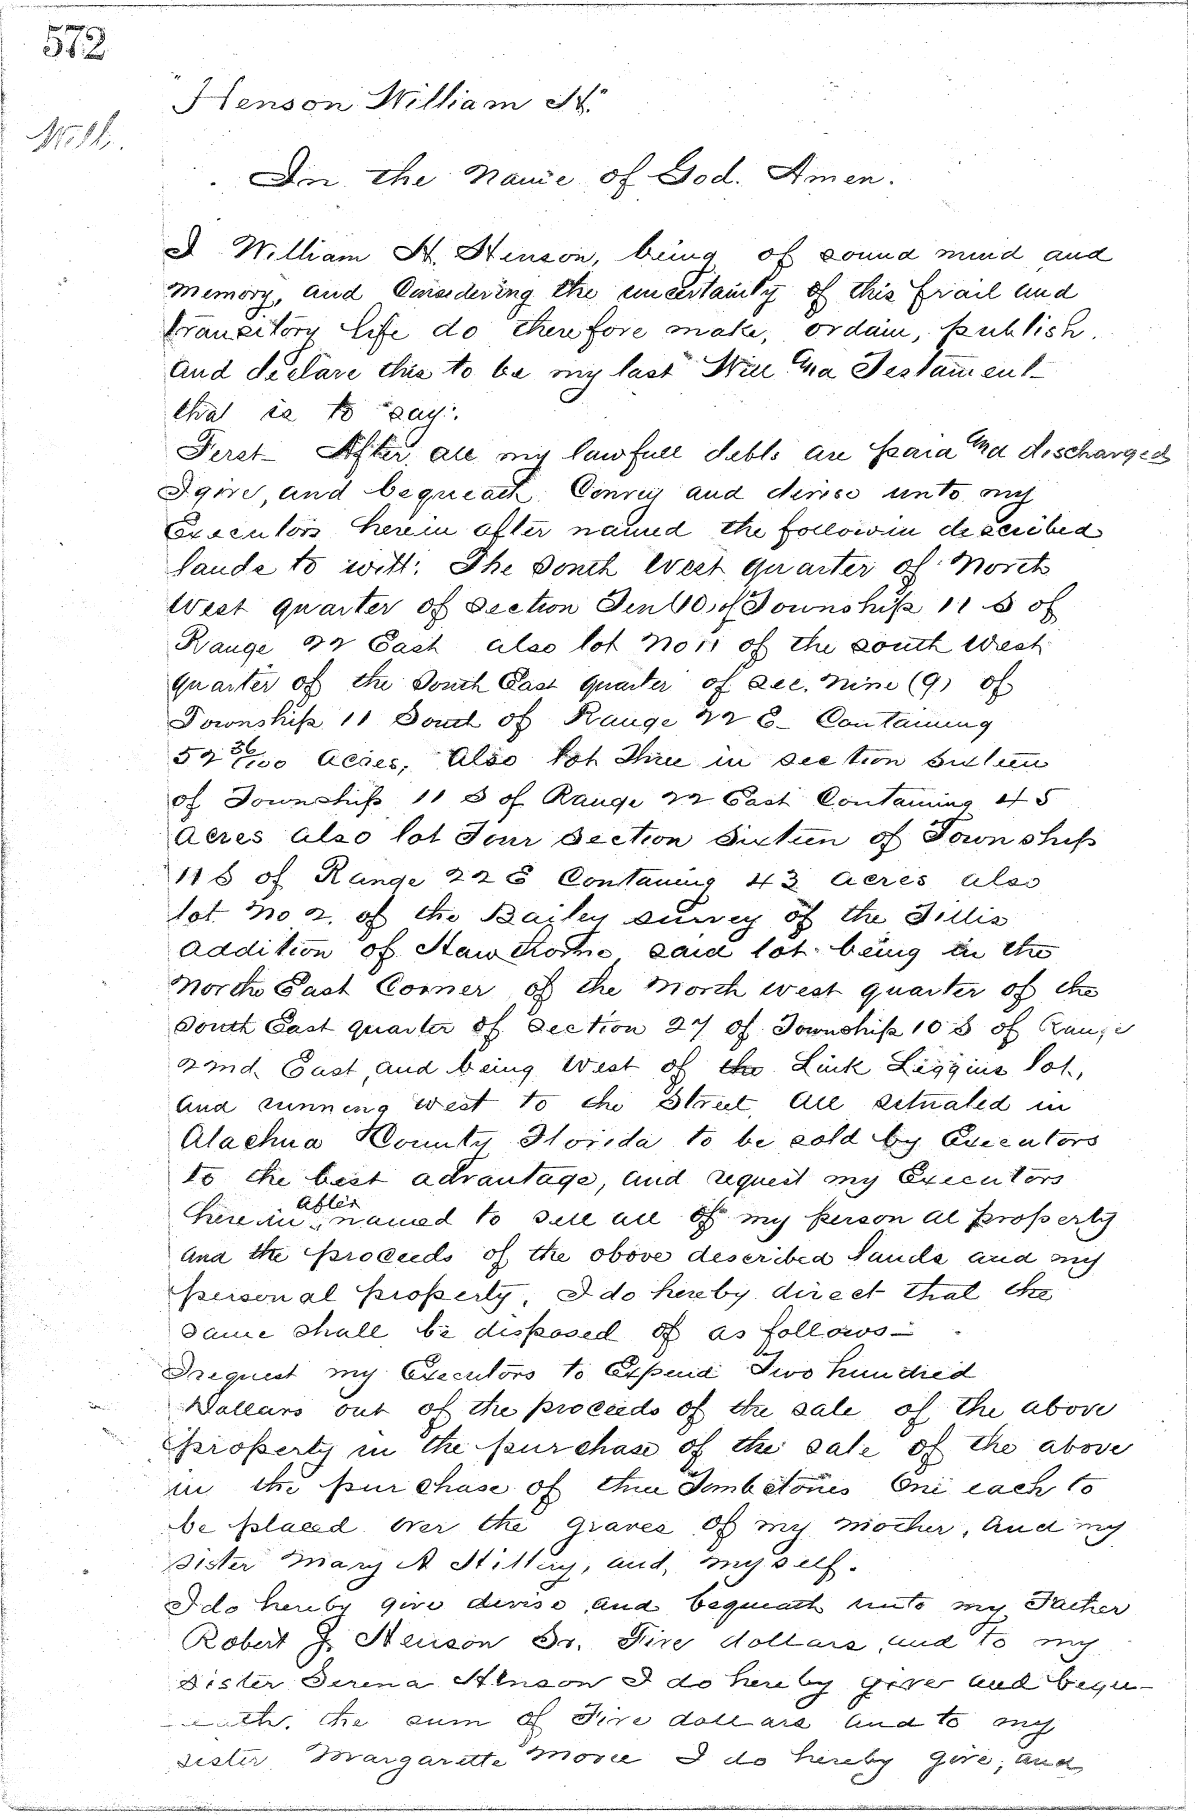 572
"Henson William H."
Will.
In the Name of God. Amen.
I William H. Henson, being of sound mind and
memory, and Considering the uncertainty of this frail and
transitory life do therefore make, ordain, publish.
and declare this to be my last Will and Testament
that is to say:
Ferst After all my lawfull debts are paid and discharged
I give, and bequeath Convey and devise unto my
Executors herein after named the followin described
lands to witt: The South West quarter of North
West quarter of Section Ten (10) of Township 11 S of
Range 22 East also lot No 11 of the south west
quarter of the South East quarter of Sec. Nine (9) of
Township 11 South of Range 22 E Containing
52 36/100 acres, Also lot Three in section sixteen
of Township 11 S of Range 22 East Containing 45
acres also lot Four Section Sixteen of Township
11 S of Range 22 E Containing 43 acres also
lot No 2. of the Bailey survey of the Tillis
addition of Hawthorne said lot being in the
North East Corner of the North west quarter of the
South East quarter of Section 27 of Township 10 S of Range
22nd. East, and being West of the Link Liggins lot,
and running west to the Street, All situated in
Alachua County Florida to be sold by Executors
to the best advantage, and request my Executors
herein after named to sell all of my personal property
and the proceeds of the obove described lands and my
personal property, I do hereby direct that the
same shall be disposed of as follows—
I request my Executors to Expend Two hundred
Dollars out of the proceeds of the sale of the above
property in the purchase of the sale of the above
in the purchase of three Tombstones One each to
be placed over the graves of my mother, and my
sister Mary A Hillery, and, myself.
I do hereby give devise and bequeath unto my Father
Robert J. Henson Sr. Five dollars, and to my
sister Serena Henson I do hereby give and bequ-
-eath. the sum of Five dollars and to my
sister Margarette Moore I do hereby give, and